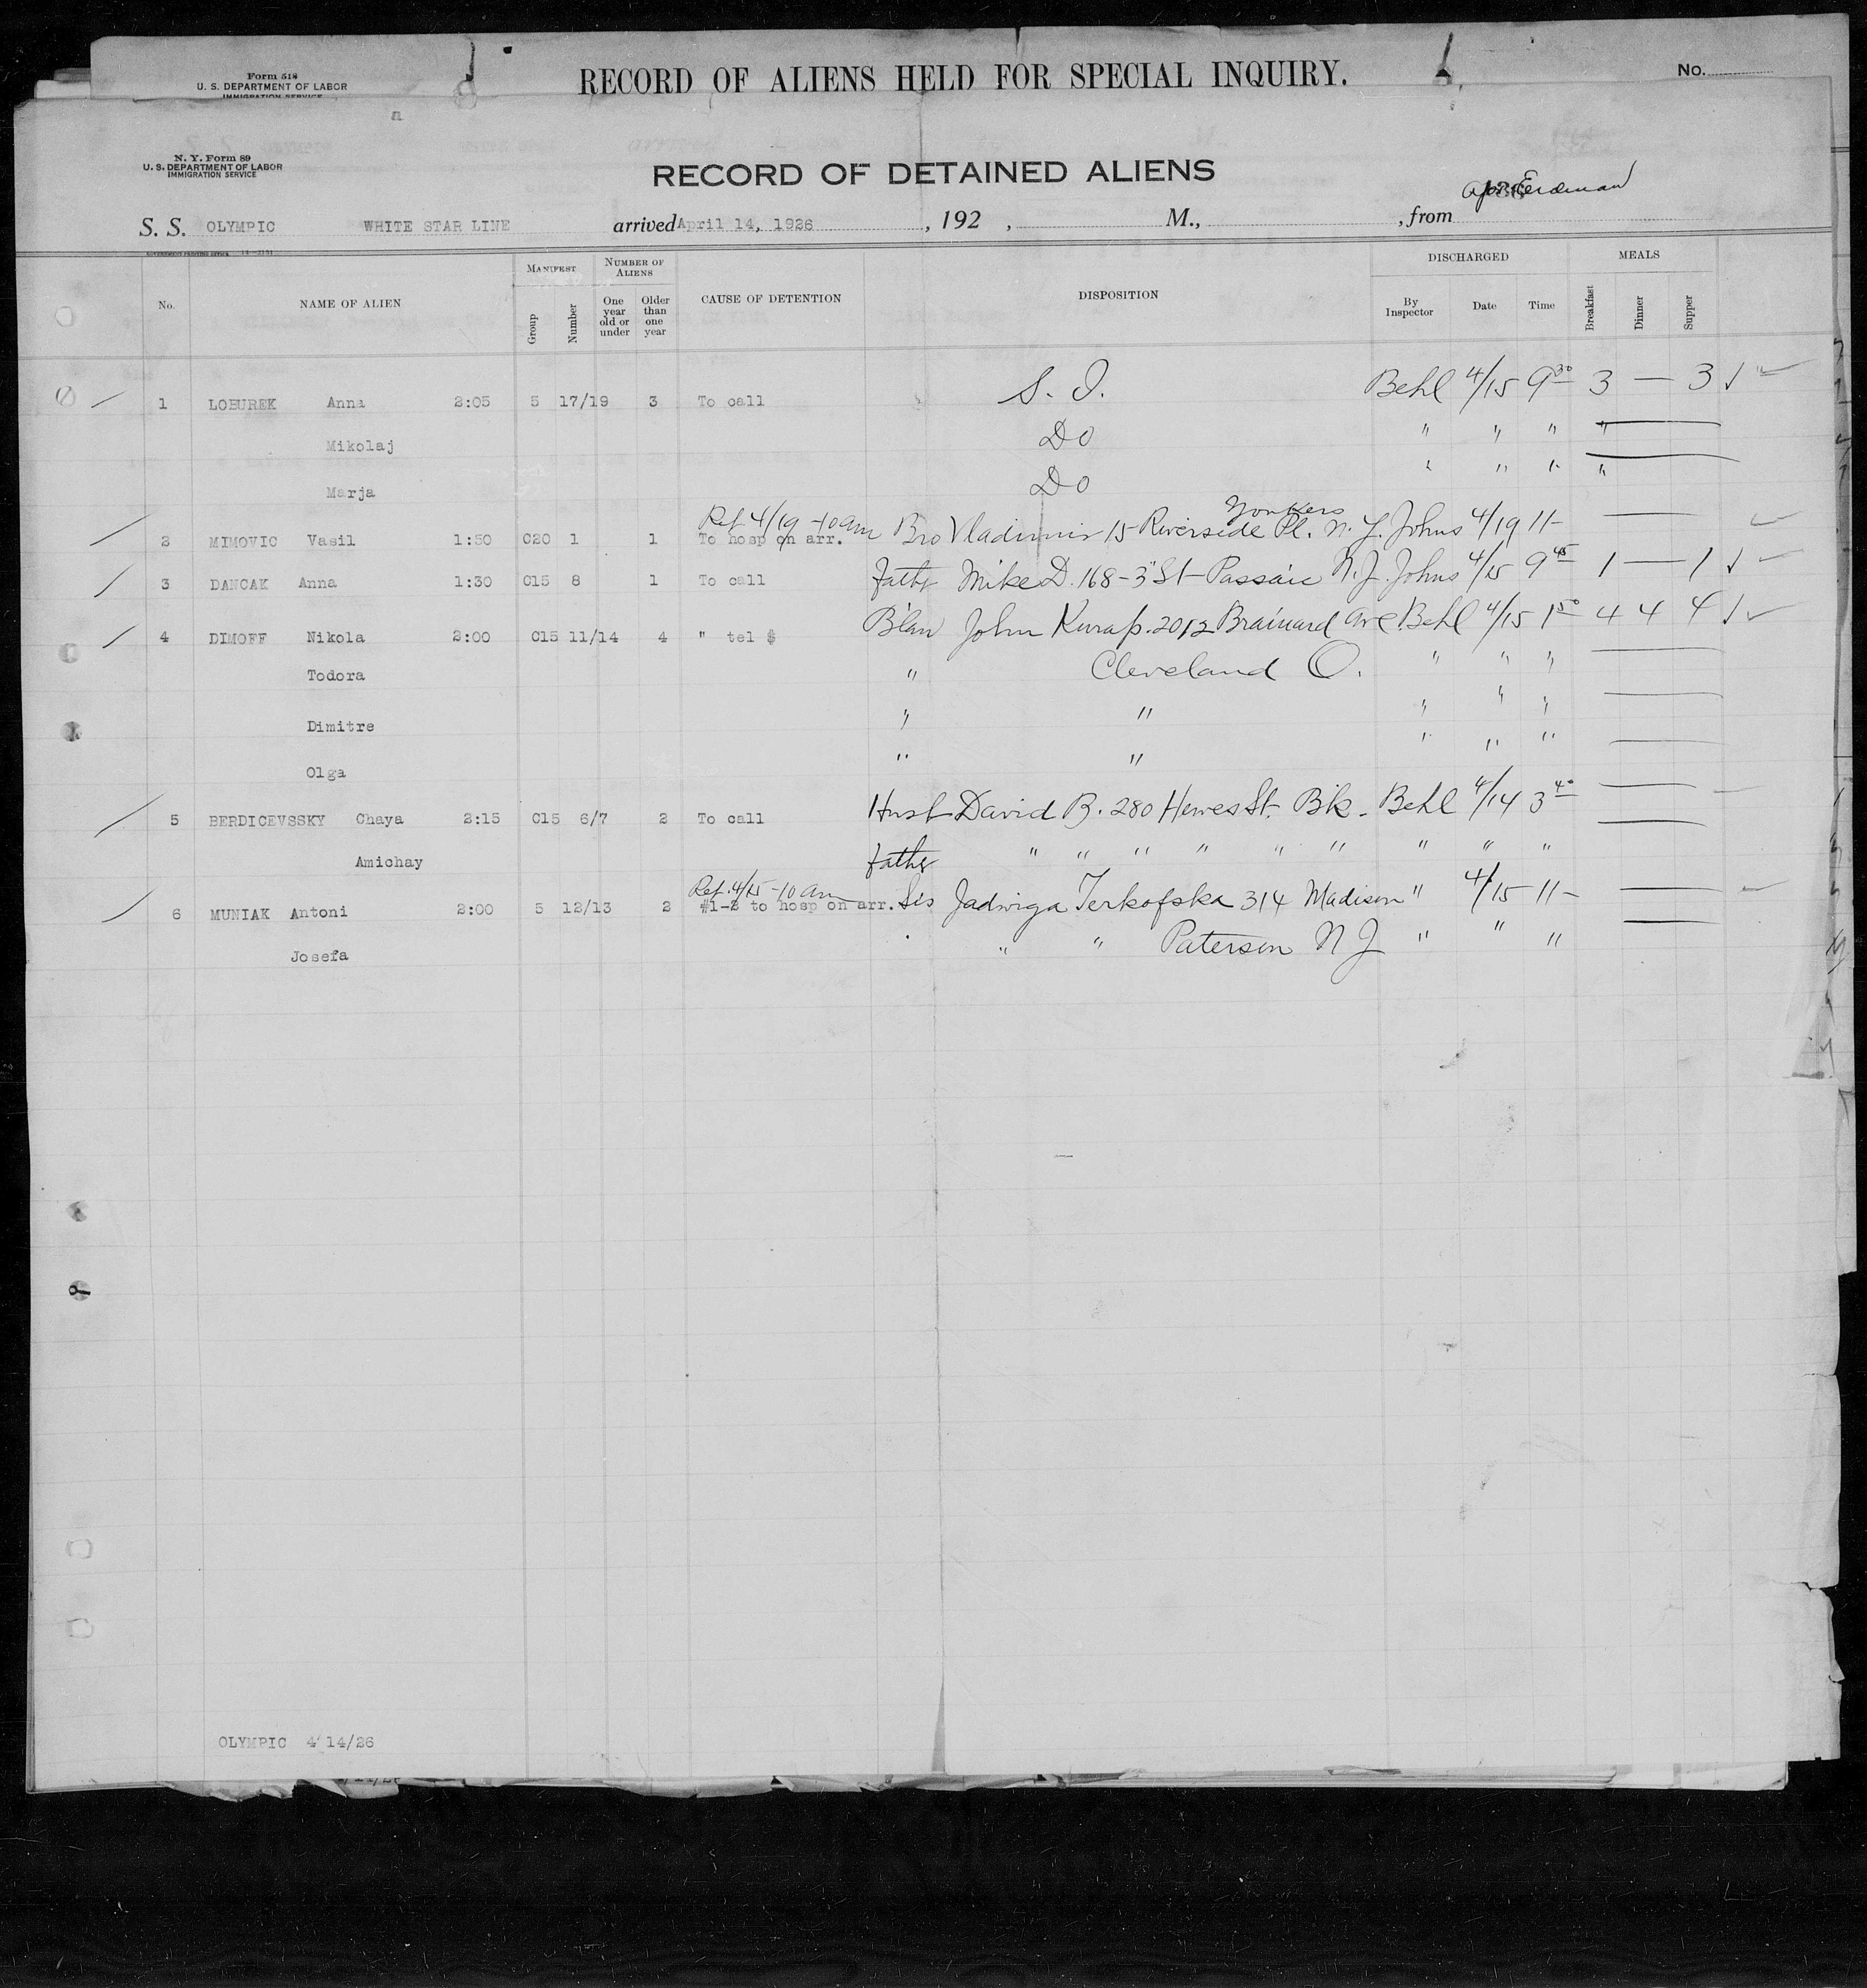 Form 518
U. S. DEPARTMENT OF LABOR
IMMIGRATION SERVICE
RECORD OF ALIENS HELD FOR SPECIAL INQUIRY.
No.
N. Y. Form 89
U. S. DEPARTMENT OF LABOR
IMMIGRATION SERVICE
RECORD OF DETAINED ALIENS
S. S. OLYMPIC WHITE STAR LINE arrived April 14, 1926 , 192 , M., , from Erdman
No. NAME OF ALIEN MANIFEST Group Number NUMBER OF ALIENS One year old or under Older than one year CAUSE OF DETENTION DISPOSITION DISCHARGED By Inspector Date Time MEALS Breakfast Dinner Supper
1 LOBUREK Anna 2:05 5 17/19 3 To call S. I. Behl 4/15 9 30 3 — 3 ✓
Mikolaj Do " " " "
Marja Do " " " "
Ref 4/19 - 10 am Yonkers
2 MIMOVIC Vasil 1:50 C20 1 1 To hosp on arr. Bro Vladimir 15 Riverside Pl. N. Y. Johns 4/19 11-
3 DANCAK Anna 1:30 C15 8 1 To call Fath Mike D. 168 - 3 St - Passaic N. J. Johns 4/15 9 45 1 — 1 ✓
4 DIMOFF Nikola 2:00 C15 11/14 4 " tel $ John Kurap. 2012 Brainard Ave Behl 4/15 1 50 4 4 4 ✓
Todora " Cleveland O. " " "
Dimitre " " " " "
Olga " " " " "
5 BERDICEVSSKY Chaya 2:15 C15 6/7 2 To call Husb David B. 280 Hewes St. Bk. Behl 4/14 3 40
Amichay Father " " " " " " " " "
Ref. 4/15 - 10 am
6 MUNIAK Antoni 2:00 5 12/13 2 #1-2 to hosp on arr. Sis Jadwiga Terkofska 314 Madison " 4/15 11-
Josefa " " Paterson N J " " "
OLYMPIC 4/14/26